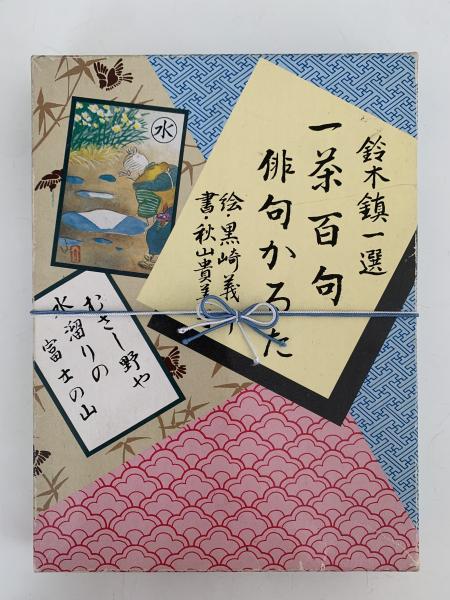 鈴木鎮一選
一茶百句
俳句かるた
絵・黒崎義
書・秋山貴美
水
むさし野や
水溜りの
富士の山